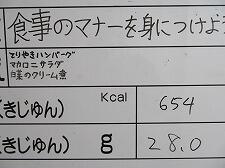 食事のマナーを身につけよう
てりやきハンバーグ
マカロニサラダ
白菜のクリーム煮
きじゅん) Kcal 654
きじゅん) g 28.0